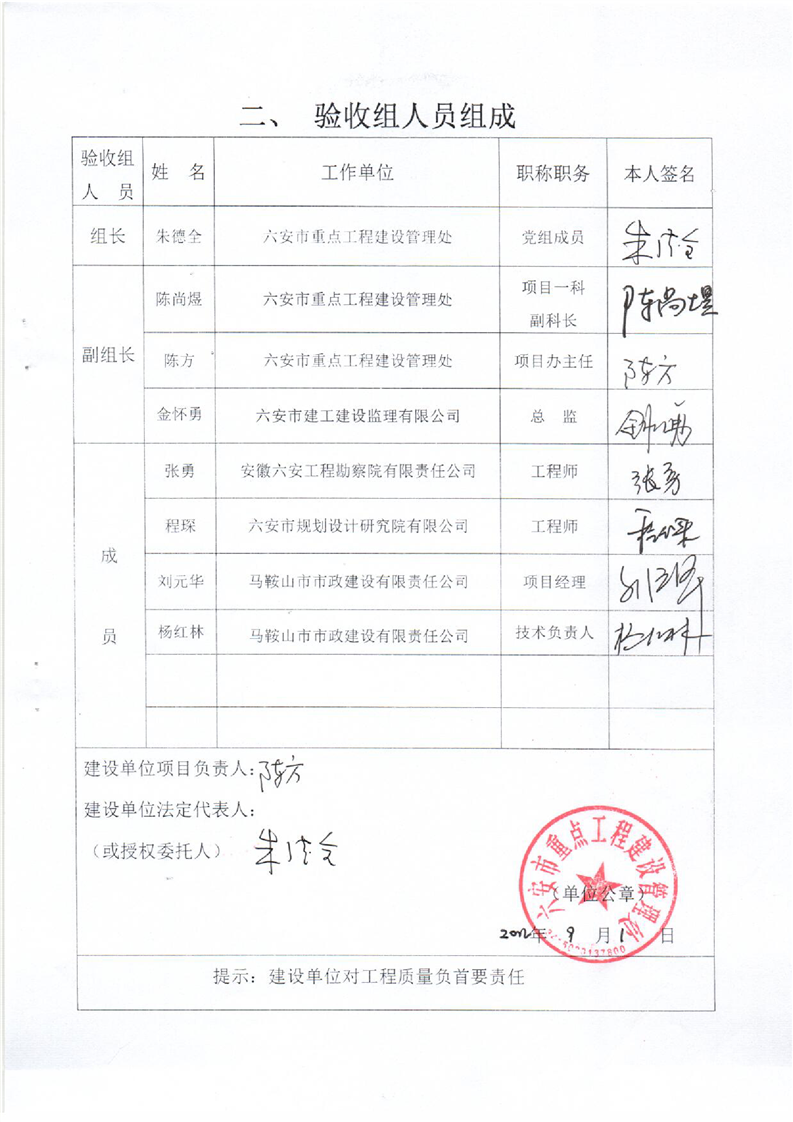 二、 验收组人员组成
验收组人 员 姓 名 工作单位 职称职务 本人签名
组长 朱德全 六安市重点工程建设管理处 党组成员 朱德全
副组长 陈尚煜 六安市重点工程建设管理处 项目一科副科长 陈尚煜
陈方 六安市重点工程建设管理处 项目办主任 陈方
金怀勇 六安市建工建设监理有限公司 总 监 金怀勇
成员 张勇 安徽六安工程勘察院有限责任公司 工程师 张勇
程琛 六安市规划设计研究院有限公司 工程师 程琛
刘元华 马鞍山市市政建设有限责任公司 项目经理 刘元华
杨红林 马鞍山市市政建设有限责任公司 技术负责人 杨红林
建设单位项目负责人：陈方
建设单位法定代表人：
（或授权委托人） 朱德全
六安市重点工程建设管理处
（单位公章）
年 9 月 1 日
提示：建设单位对工程质量负首要责任